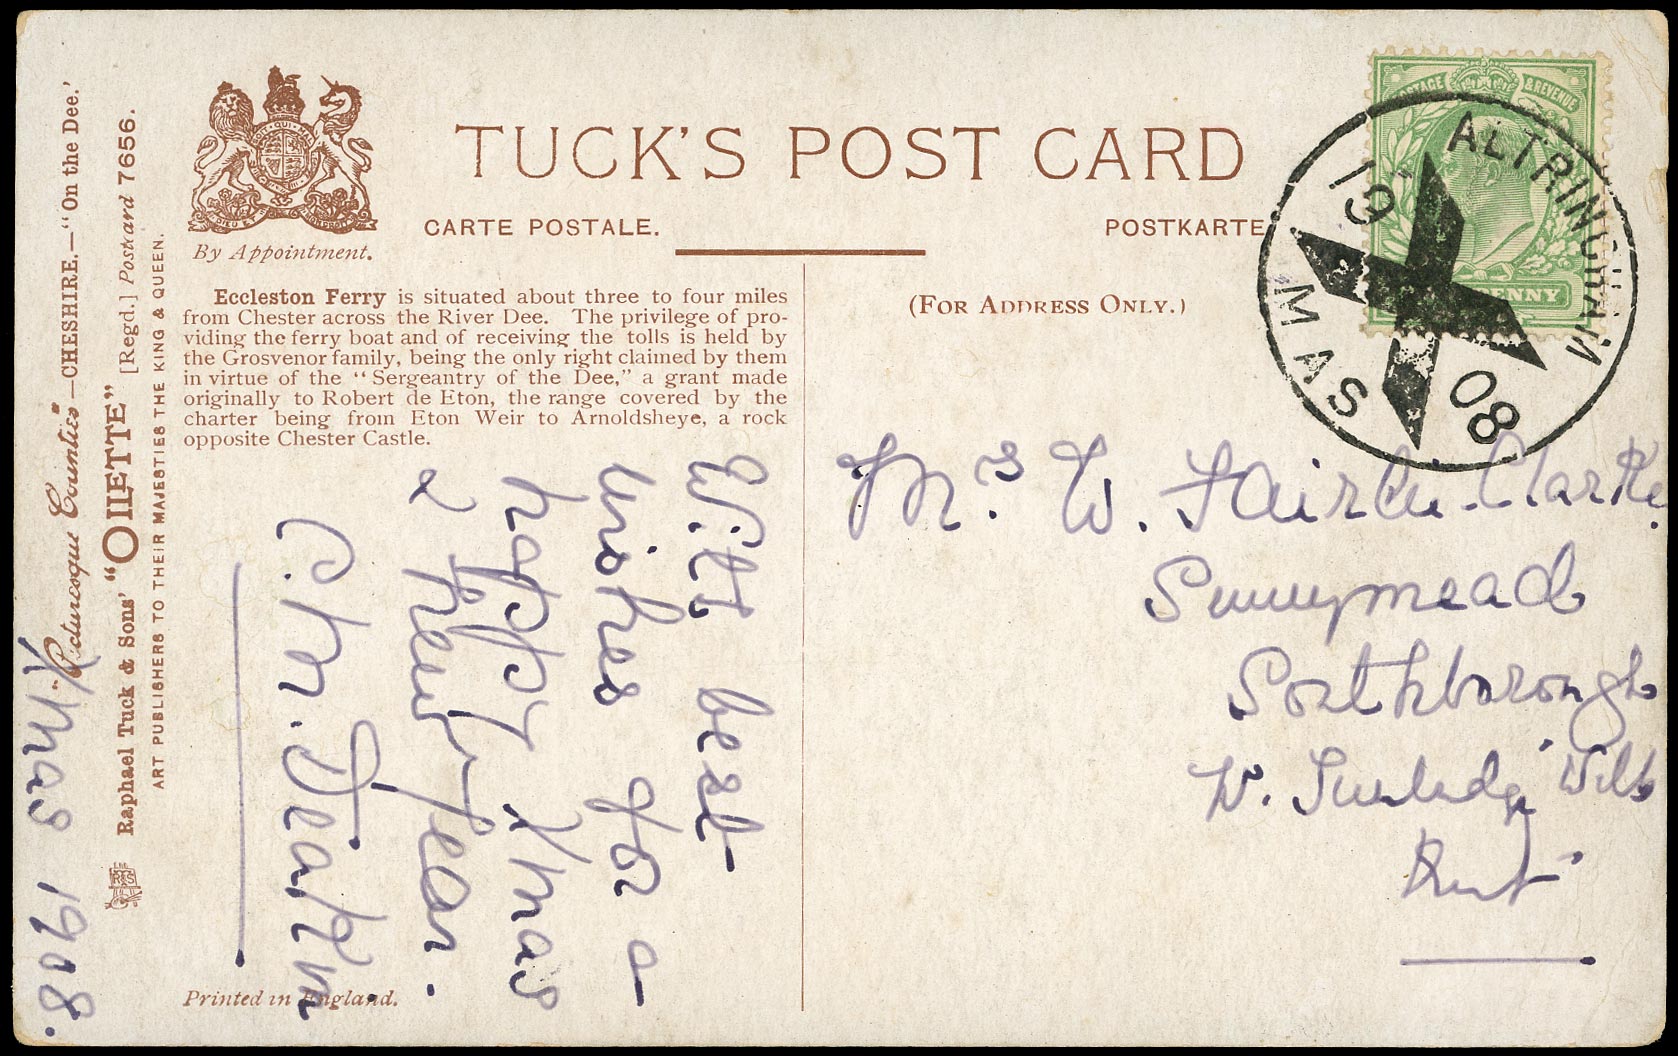 TUCK'S POST CARD
CARTE POSTALE.
POSTKARTE
By Appointment.
(FOR ADDRESS ONLY.)
Eccleston Ferry is situated about three to four miles
from Chester across the River Dee. The privilege of pro-
viding the ferry boat and of receiving the tolls is held by
the Grosvenor family, being the only right claimed by them
in virtue of the "Sergeantry of the Dee," a grant made
originally to Robert de Eton, the range covered by the
charter being from Eton Weir to Arnoldsheye, a rock
opposite Chester Castle.
With best
wishes for a
happy Xmas
& New Year.
C. M. Deakin
Xmas 1908.
"Picturesque Counties"—CHESHIRE.—"On the Dee."
Raphael Tuck & Sons' "OILETTE" [Regd.] Postcard 7656.
ART PUBLISHERS TO THEIR MAJESTIES THE KING & QUEEN.
Printed in England.
POSTAGE & REVENUE
PENNY
ALTRINCHAM
19 08
XMAS
Mrs W. Fairlie-Clarke,
Sunnymead
Southborough
Nr. Tunbridge Wells
Kent